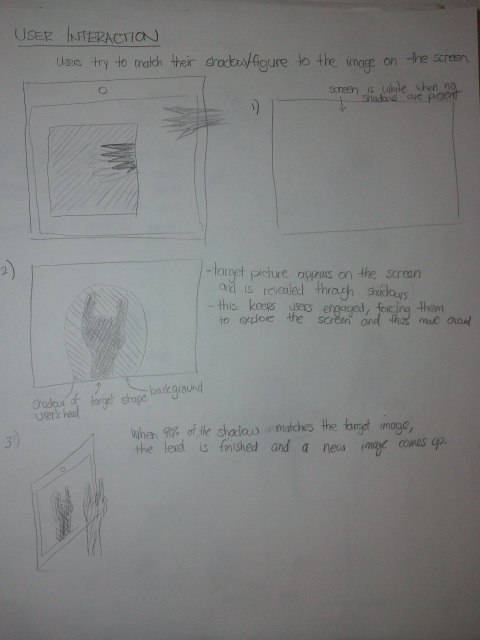 USER INTERACTION
Users try to match their shadow/figure to the image on the screen
1)
screen is white when no
shadows are present
2)
- target picture appears on the screen
and is revealed through shadows
- this keeps users engaged, forcing them
to explore the screen and thus move around
shadow of
user's head
target shape
background
3)
When 90% of the shadow matches the target image,
the level is finished and a new image comes up.